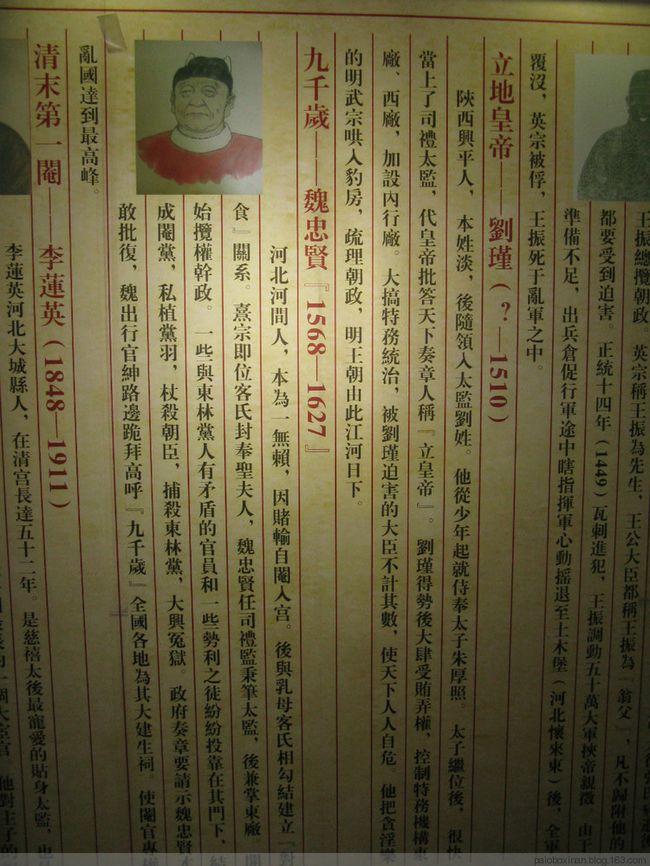 王振總攬朝政 英宗稱王振為先生，王公大臣都稱王振為「翁父」，凡不歸附他的
都要受到迫害。正統十四年（1449）瓦剌進犯，王振調動五十萬大軍挾帝親徵 由于
準備不足，出兵倉促行軍途中瞎指揮軍心動搖退至土木堡（河北懷來東）後，全軍
覆沒，英宗被俘，王振死于亂軍之中。
立地皇帝——劉瑾（？—1510）
陝西興平人，本姓淡，後隨領入太監劉姓。他從少年起就侍奉太子朱厚照。太子繼位後，很快
當上了司禮太監，代皇帝批答天下奏章人稱『立皇帝』。劉瑾得勢後大肆受賄弄權，控制特務機構東
廠、西廠，加設內行廠。大搞特務統治，被劉瑾迫害的大臣不計其數，使天下人人自危。他把貪淫樂
的明武宗哄入豹房，疏理朝政，明王朝由此江河日下。
九千歲——魏忠賢『1568—1627』
河北河間人，本為一無賴，因賭輸自閹入宮。後與乳母客氏相勾結建立『對
食』關系。熹宗即位客氏封奉聖夫人，魏忠賢任司禮監秉筆太監，後兼掌東廠 開
始攬權幹政。一些與東林黨人有矛盾的官員和一些勢利之徒紛紛投靠在其門下，
成閹黨，私植黨羽，杖殺朝臣，捕殺東林黨，大興冤獄。政府奏章要請示魏忠賢
敢批復，魏出行官紳路邊跪拜高呼『九千歲』全國各地為其大建生祠。使閹官專權
亂國達到最高峰。
清末第一閹 李蓮英（1848—1911）
李蓮英河北大城縣人，在清宮長達五十二年。是慈禧太後最寵愛的貼身太監，也
個大宦官 他對主子的
paioboxinan.blog.163.com